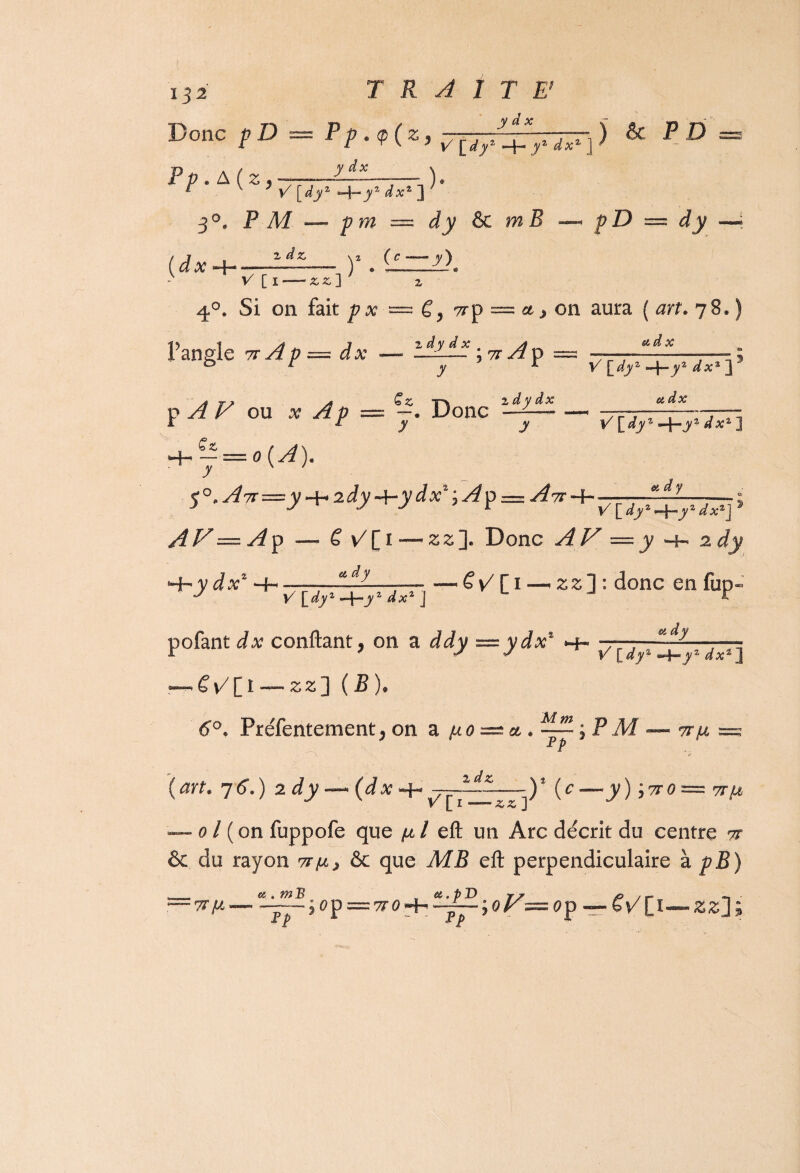 132 TRAITE'
Donc pD = Pp . φ(z, y dx / √[dy² + y² dx²]) & PD =
Pp . Δ(z, y dx / √[dy² + y² dx²]).
3°. PM — pm = dy & mB — pD = dy —
(dx + 2dz / √[1 — zz])² . (c — y) / 2.
4°. Si on fait px = ϐ, πp = α, on aura (art. 78.)
l'angle πAp = dx — 2dydx / y ; πAp = αdx / √[dy² + y² dx²] ;
pAV ou xAp = ϐz / y. Donc 2dydx / y — αdx / √[dy² + y² dx²]
+ ϐz / y = o (A).
5°. Aπ = y + 2dy + ydx² ; Ap = Aπ + αdy / √[dy² + y² dx²] ;
AV = Ap — ϐ √[1 — zz]. Donc AV = y + 2dy
+ y dx² + αdy / √[dy² + y² dx²] — ϐ√[1 — zz] : donc en ſup-
poſant dx conſtant, on a ddy = ydx² + αdy / √[dy² + y² dx²]
— ϐ√[1 — zz] (B).
6°. Préſentement, on a μo = α . Mm / Pp ; PM — πμ =
(art. 76.) 2dy — (dx + 2dz / √[1 — zz])² (c — y) ; πo = πμ
— ol (on ſuppoſe que μl eſt un Arc décrit du centre π
& du rayon πμ, & que MB eſt perpendiculaire à pB)
= πμ — α . mB / Pp ; op = πo + α . pD / Pp ; oV = op — ϐ√[1 — zz] ;